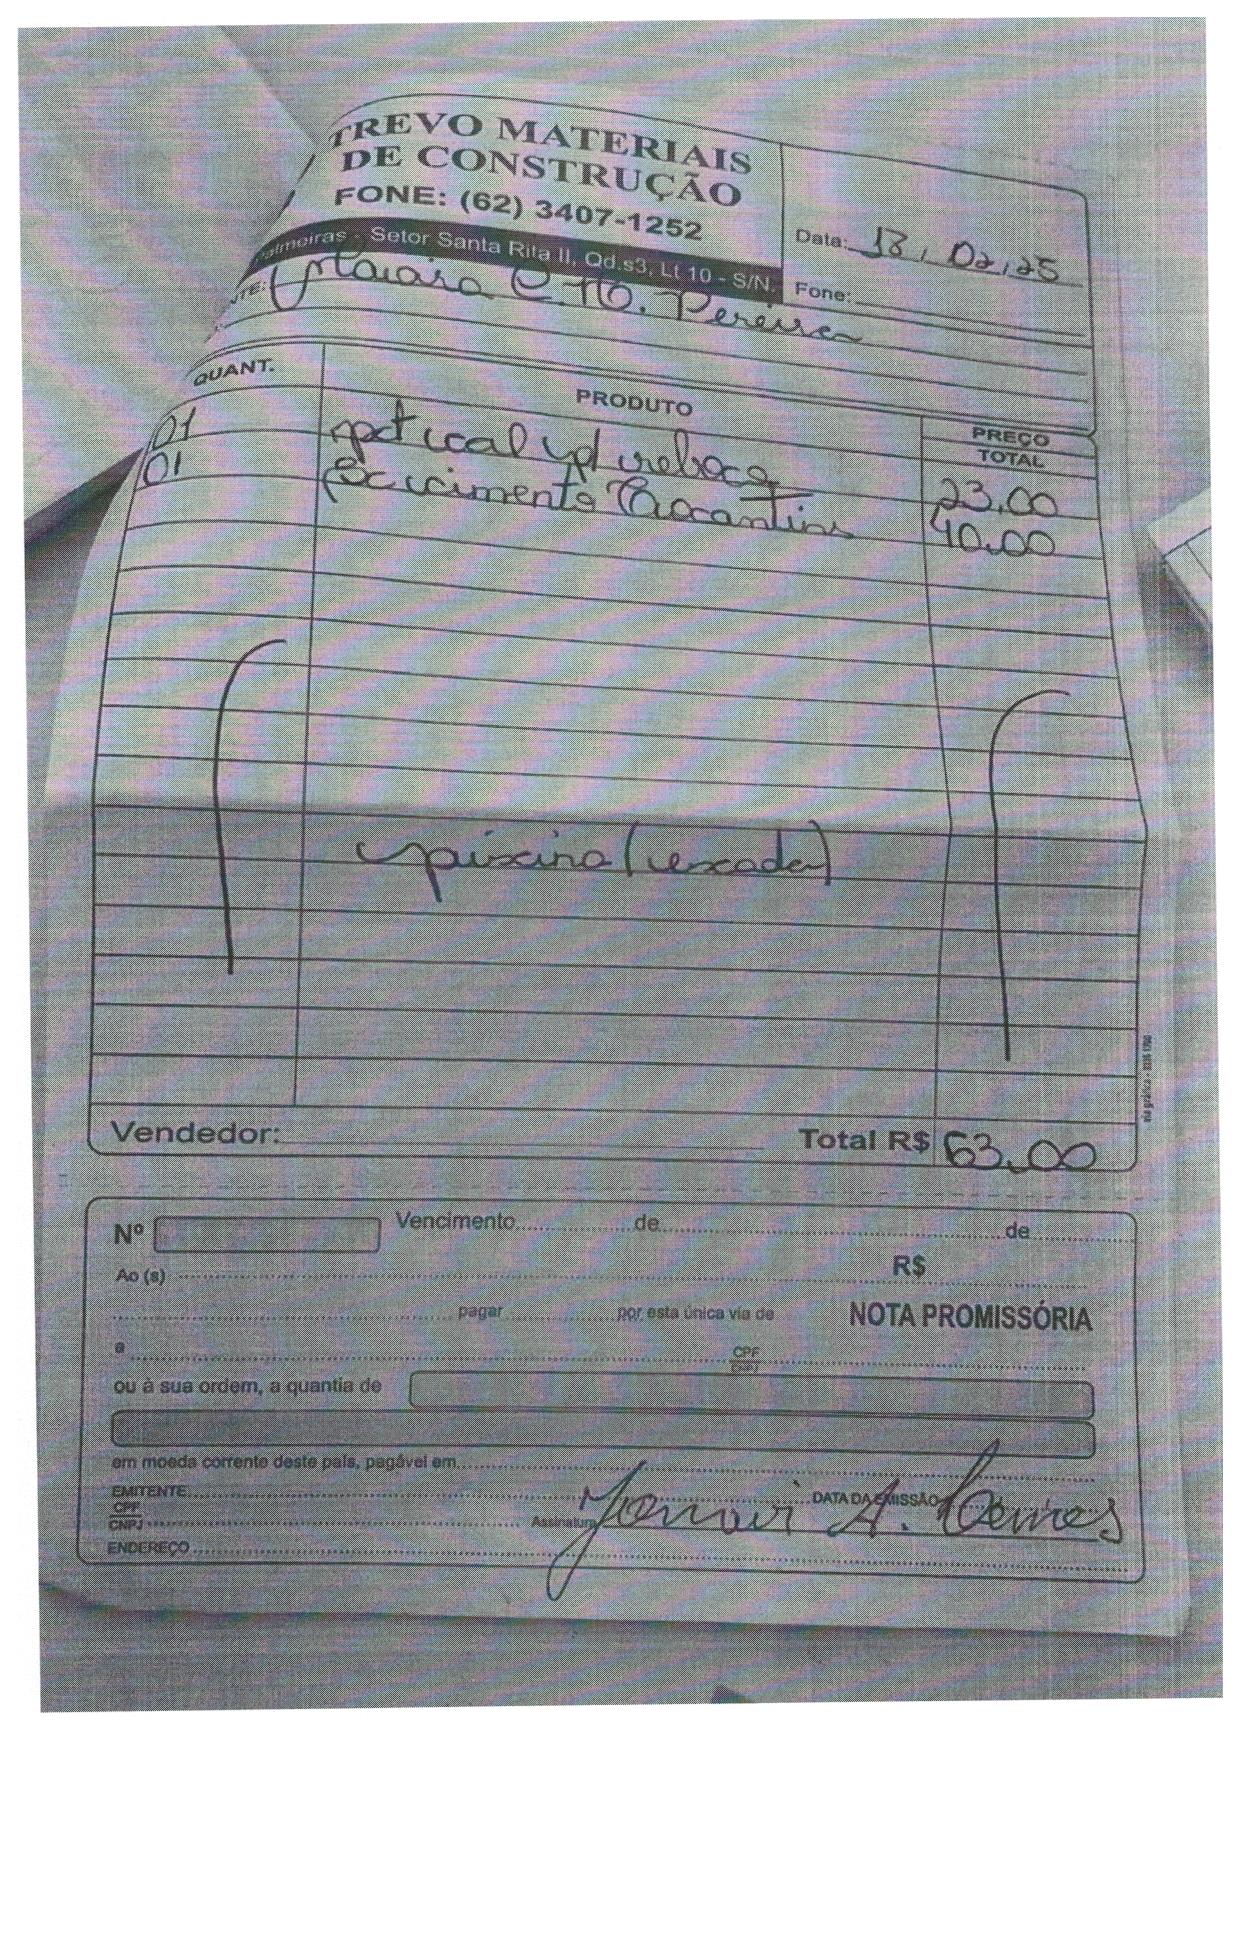 TREVO MATERIAIS
DE CONSTRUÇÃO
FONE: (62) 3407-1252
almeiras - Setor Santa Rita II, Qd.s3, Lt 10 - S/N.
Data: 13, 02, 25
Fone:
NTE: Maiara C. M. Pereira
QUANT. PRODUTO PREÇO TOTAL
01 pct cal p/ reboco 23,00
01 Sc cimento Tocantins 40,00
piscina (escada)
Vendedor: Total R$ 63,00
Nº Vencimento de de
Ao (s) R$
pagar por esta única via de NOTA PROMISSÓRIA
a CPF CNPJ
ou à sua ordem, a quantia de
em moeda corrente deste país, pagável em
EMITENTE DATA DA EMISSÃO
CPF
CNPJ Assinatura A.
ENDEREÇO